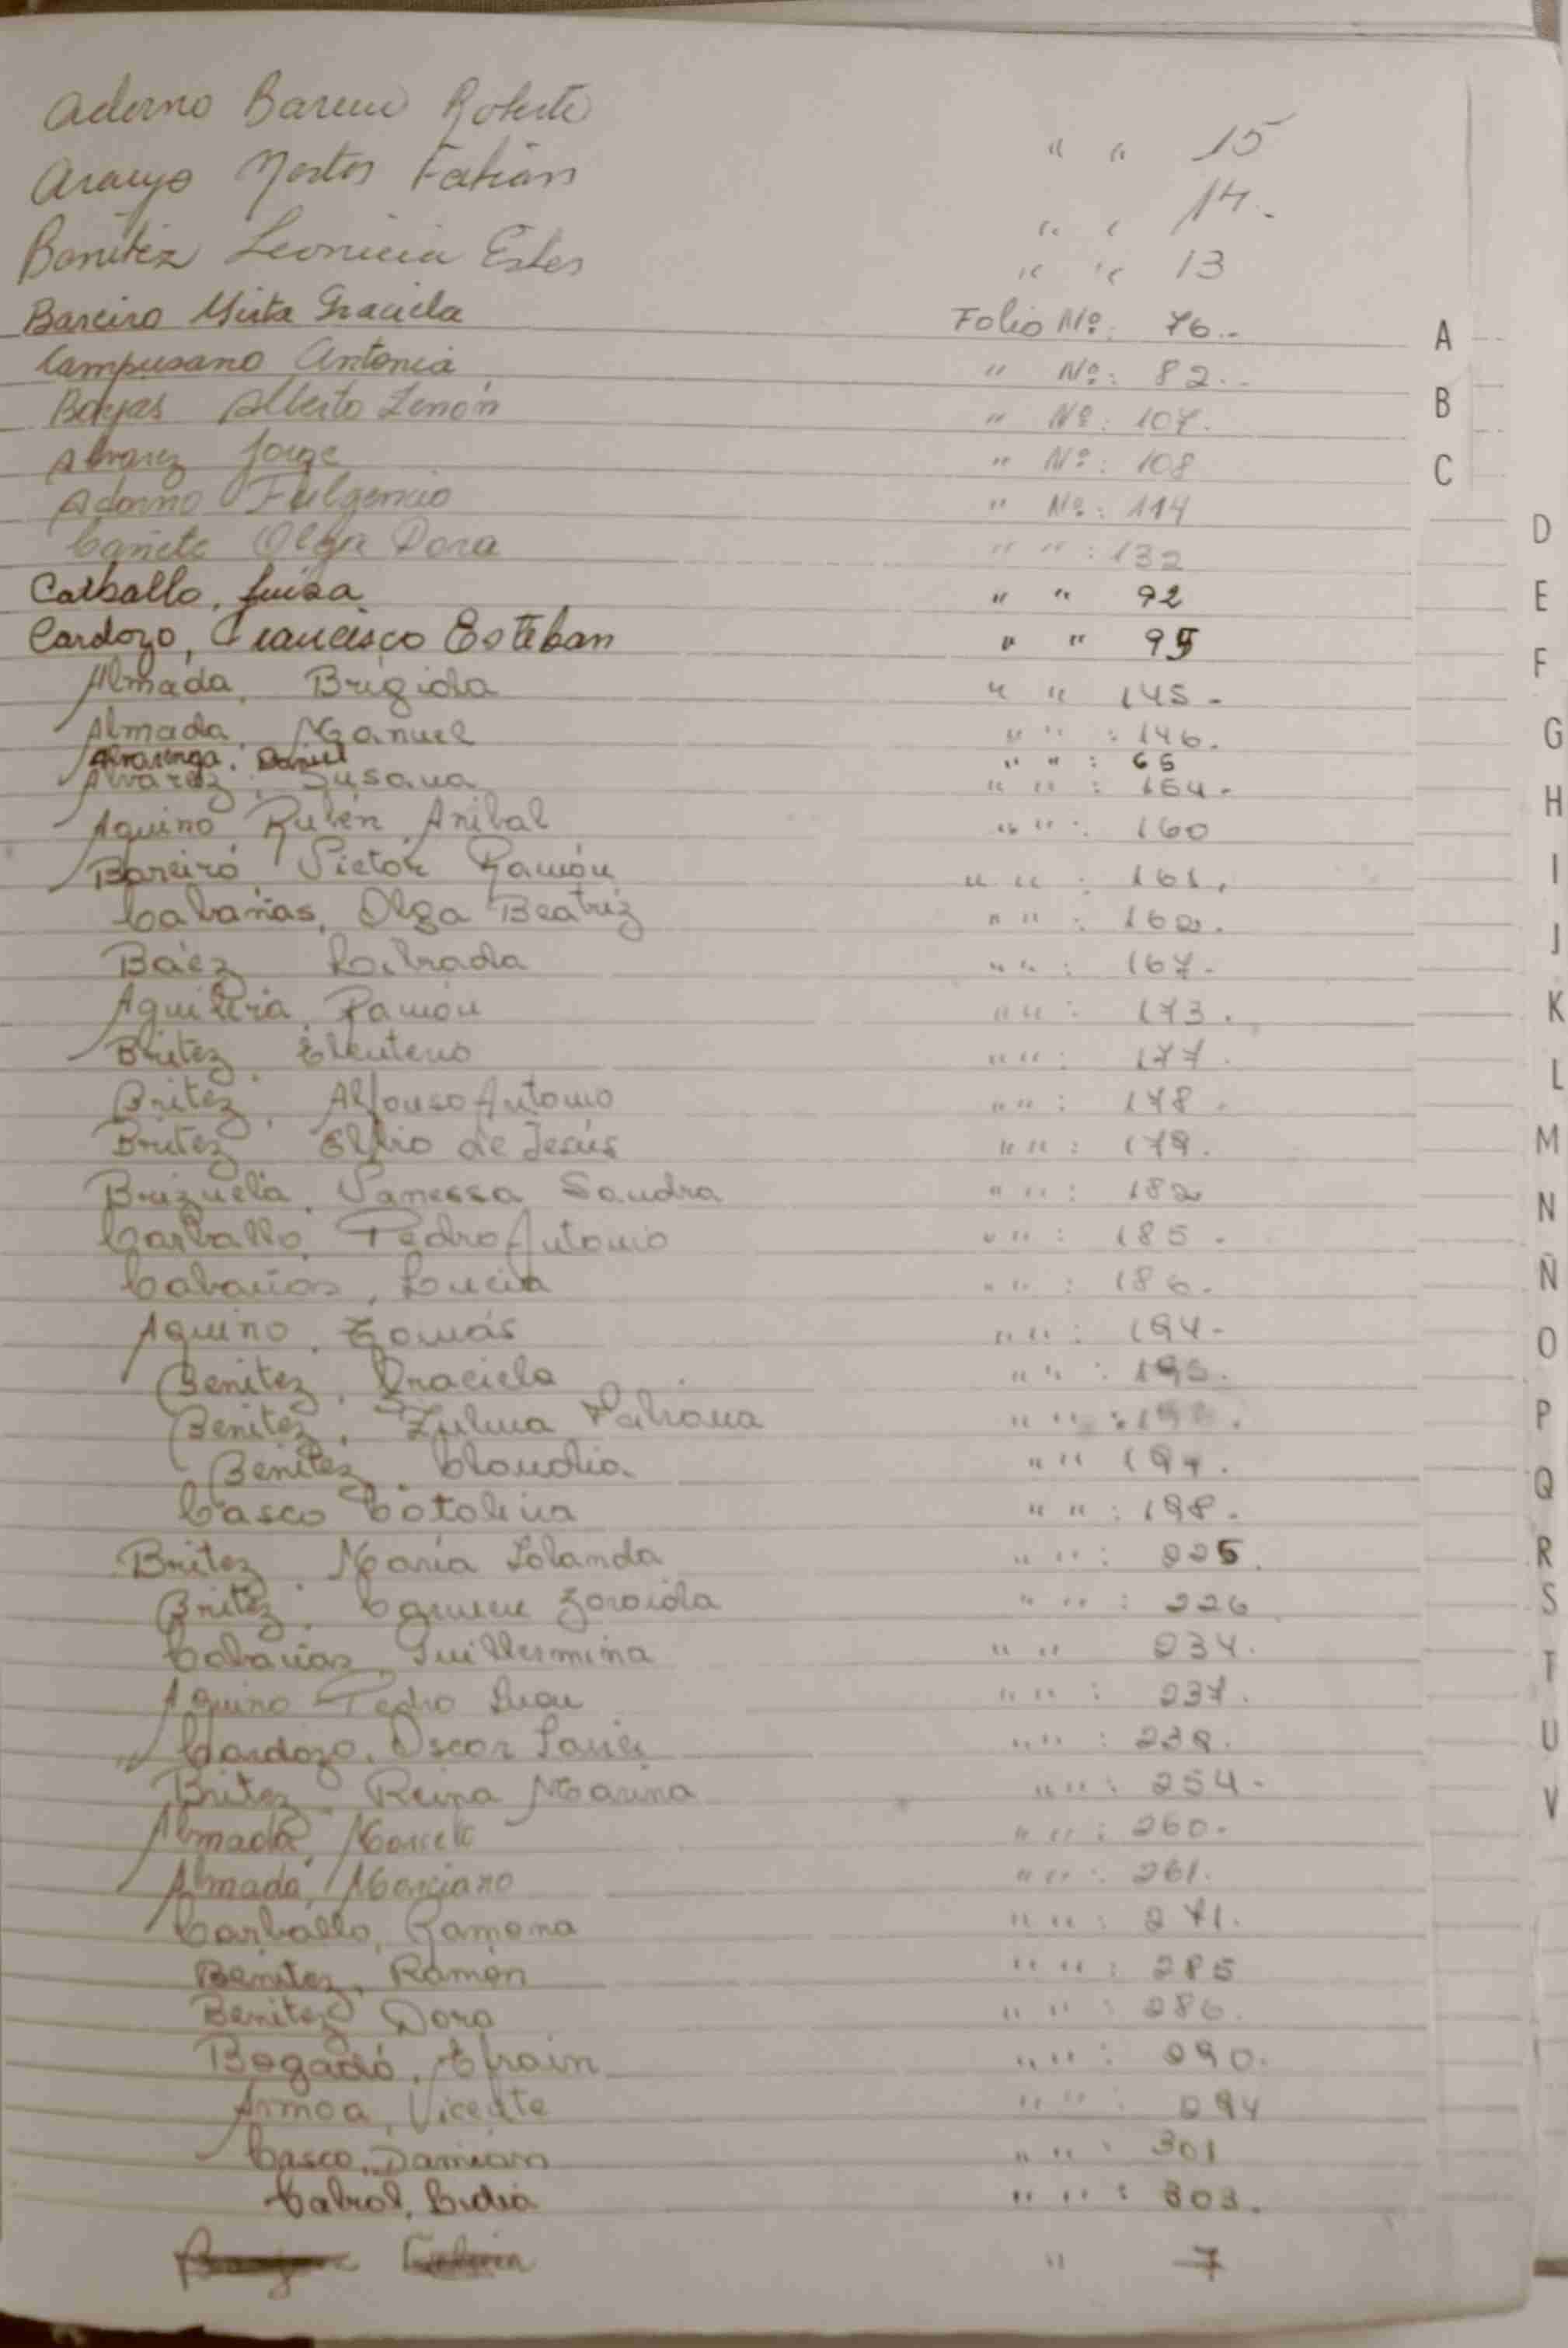 Adorno Bareiro Roberto " " 15
Araujo Nestor Fabián " " 14.-
Benítez Leonicia Ester " " 13
Bareiro Mirta Graciela Folio Nº: 76.-
Campusano Antonia " Nº: 82.-
Borjas Alberto Zenón " Nº: 107.
Alvarez Jorge " Nº: 108
Adorno Fulgencio " Nº: 114
Cañete Olga Dora " " : 132
Carballo, Luisa " " 92
Cardozo, Francisco Esteban " " 95
Almada, Brigida " " 145-
Almada, Manuel " " : 146.
Alvarenga, Daniel " " : 65
Alvarez, Susana " " : 154-
Aquino Rubén Anibal " " : 160
Bareiro Victor Ramón " " : 161.
Cabañas, Olga Beatriz " " : 162.
Báez Librada " " : 167-
Aguilera, Ramón " " : 173.
Britez, Eleuterio " " : 177.
Britez, Alfonso Antonio " " : 178-
Britez Elvio de Jesús " " : 179.
Brizuela, Vanessa Sandra " " : 182
Carballo, Pedro Antonio " " : 185-
Cabañas, Lucia " " : 186.
Aquino, Tomás " " : 194-
Benitez, Graciela " " : 195.
Benitez, Zulma " " :
Benitez, Claudia " " 197.
Casco Catalina " " : 198-
Britez, María Yolanda " " : 225.
Britez, Carmen Zoraida " " : 226
Cabañas, Guillermina " " 234.
Aquino Pedro Juan " " : 237.
Cardozo, Oscar Javier " " : 239.
Britez Reina Marina " " : 254-
Almada, Marcelo " " : 260-
Almada, Marciano " " : 261.
Carballo, Ramona " " : 271.
Benitez, Ramón " " : 285
Benitez Dora " " : 286.
Bogado, Efrain " " : 290.
Armoa, Vicente " " : 294
Casco, Damian " " : 301
Cabral, Lidia " " : 303.
" 7
A
B
C
D
E
F
G
H
I
J
K
L
M
N
Ñ
O
P
Q
R
S
T
U
V